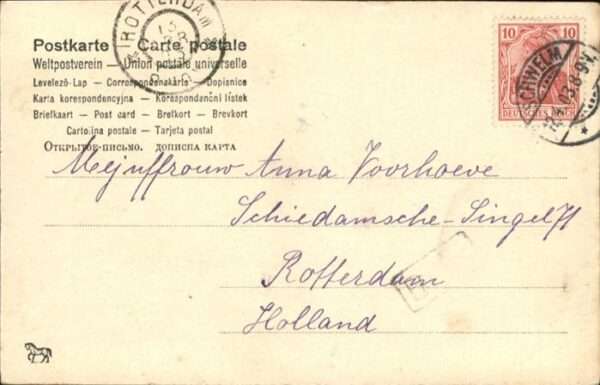 Postkarte — Carte postale
Weltpostverein — Union postale universelle
Levelező-Lap — Correspondenzkarte — Dopisnice
Karta korespondencyjna — Korespondanční lístek
Briefkaart — Post card — Brefkort — Brevkort
Cartolina postale — Tarjeta postal
Открытое-письмо. дописна карта
ROTTERDAM
10 10
DEUTSCHES REICH
SCHWELM
Mejuffrouw Anna Voorhoeve
Schiedamsche-Singel 71
Rotterdam
Holland